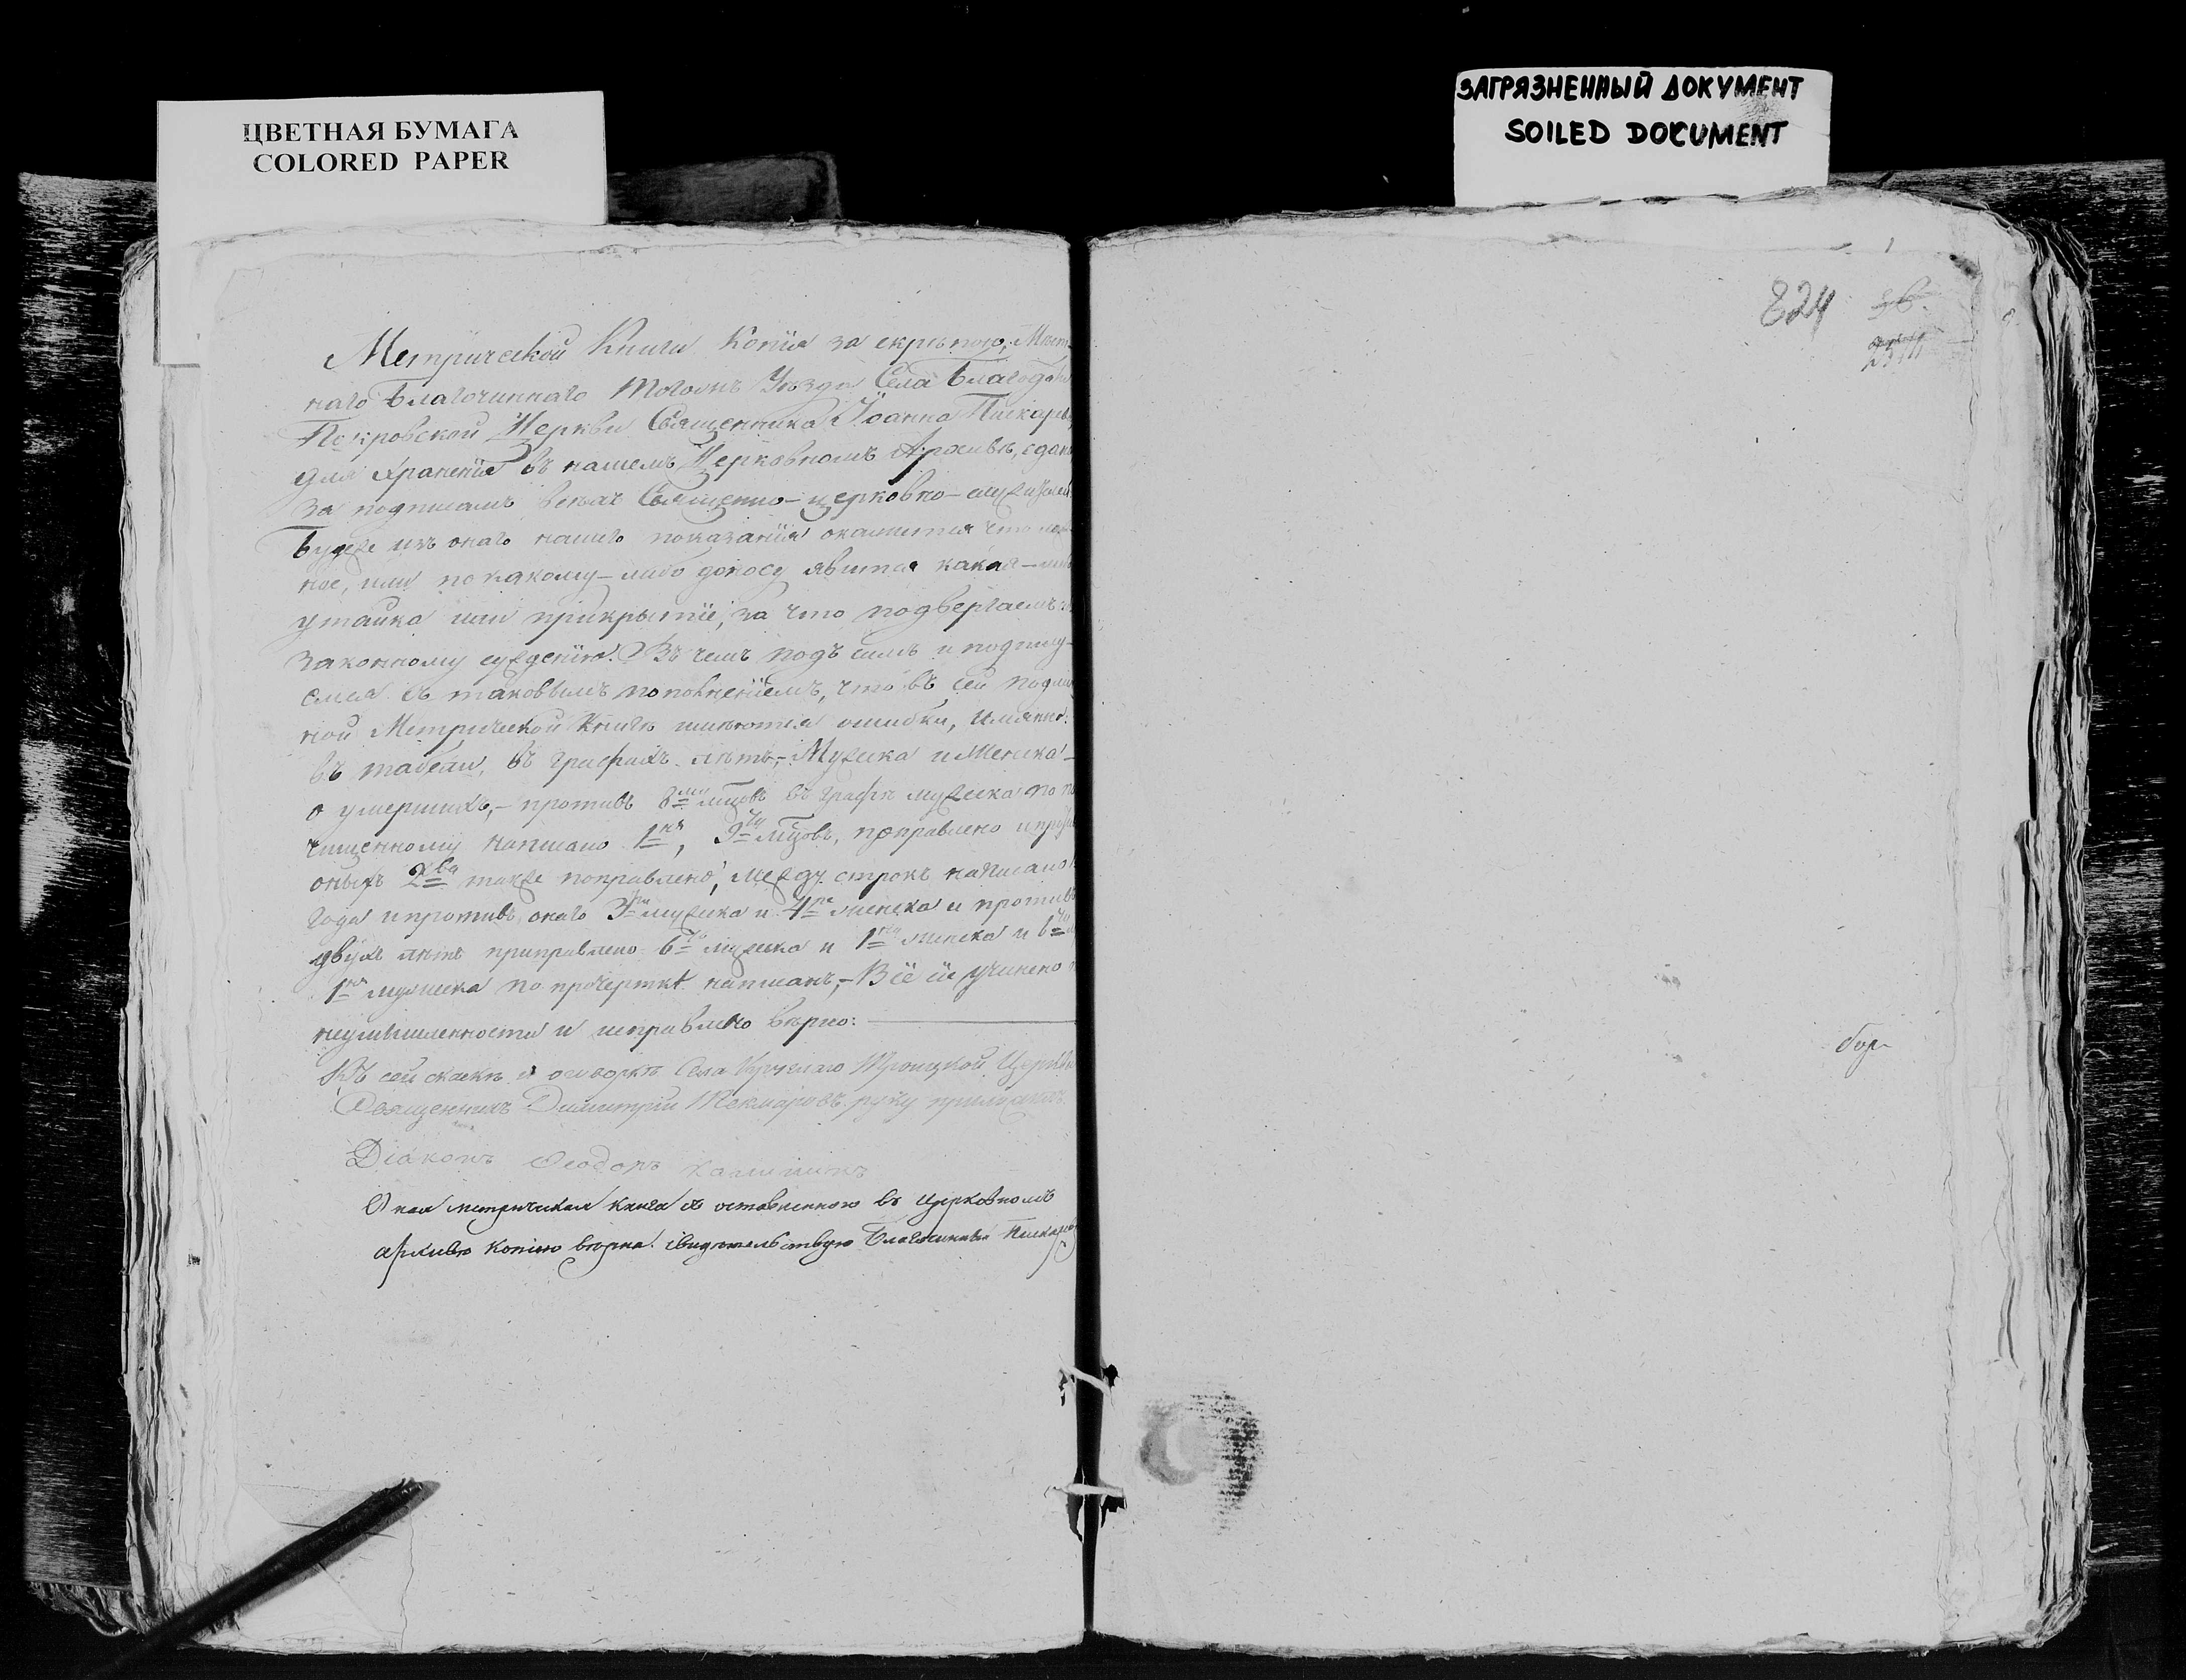 ЦВЕТНАЯ БУМАГА
COLORED PAPER
ЗАГРЯЗНЕННЫЙ ДОКУМЕНТ
SOILED DOCUMENT
Метрической Книги Копія за скрѣпою, Мѣст
наго Благочиннаго тогожъ Уѣзда Села Благода
Покровской Церкви Священника Іоанна Пискаре
для храненія въ нашемъ Церковномъ Архивѣ, сдан
за подписомъ всѣхъ Священно-церковно-служителей
Буде же изъ онаго нашего показанія окажется что не
ное, или по какому-либо доносу явится какая-либ
утайка или прикрытіе, за что подвергаемъ
законному сужденію. Въ чемъ подъ симъ и подпису-
емся съ таковымъ пополненіемъ, что въ сей подлин
ной Метрической Книгѣ имѣются ошибки, имянно:
въ табели, въ графахъ лѣтъ, Мужеска и Женска
о умершихъ,- противъ 8ми мцовъ въ графѣ мужеска по
чищенному написано 1нъ, 9ти мцовъ, поправлено и про
оныхъ 2ва также поправлено, между строкъ написано
года и противъ онаго 3ри мужеска и 4ре женска и противъ
двухъ лѣтъ приправлено 6ть мужеска и 1на женска и 6
1нъ мужеска по прочерткѣ написанъ,- Всё сіе учинено
неумышленности и исправлено вѣрно:
Къ сей скаскѣ и оговоркѣ Села Троицкой Церкви
Священникъ Димитрій руку приложилъ
Діаконъ Ѳеодоръ
Оная метрическая книга съ оставленною въ Церковномъ
архивѣ копіею вѣрна. свидѣтельствую Благочинный Пискарев
824
36